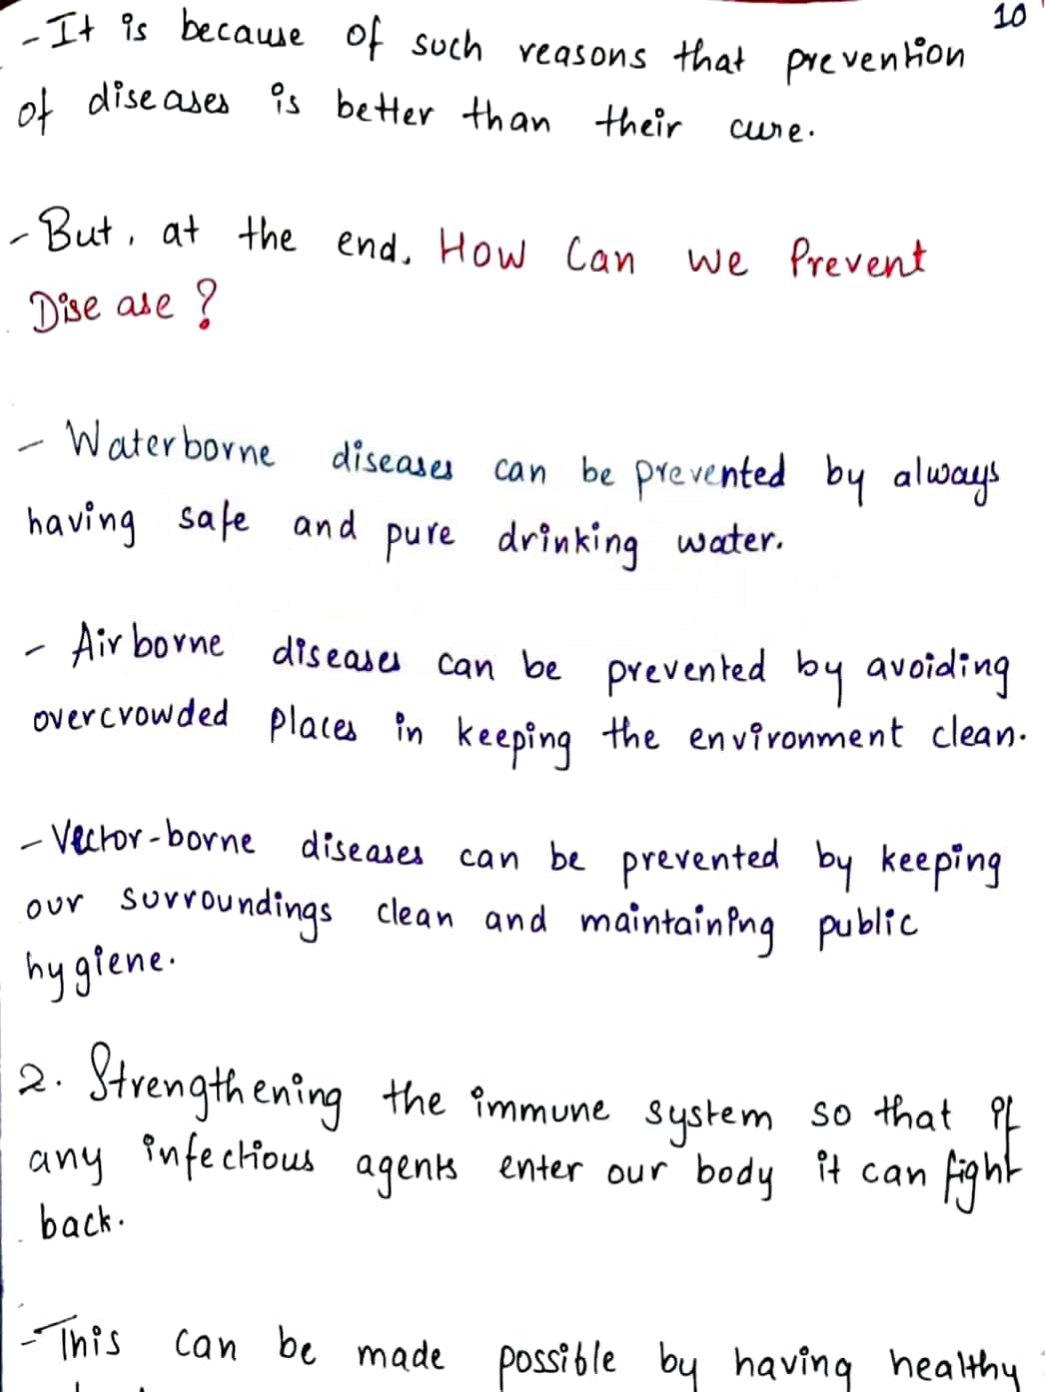 10
- It is because of such reasons that prevention
of diseases is better than their cure.
- But, at the end, How Can we Prevent
Disease?
- Waterborne diseases can be prevented by always
having safe and pure drinking water.
- Airborne diseases can be prevented by avoiding
overcrowded places in keeping the environment clean.
- Vector-borne diseases can be prevented by keeping
our surroundings clean and maintaining public
hygiene.
2. Strengthening the immune system so that if
any infectious agents enter our body it can fight
back.
- This can be made possible by having healthy